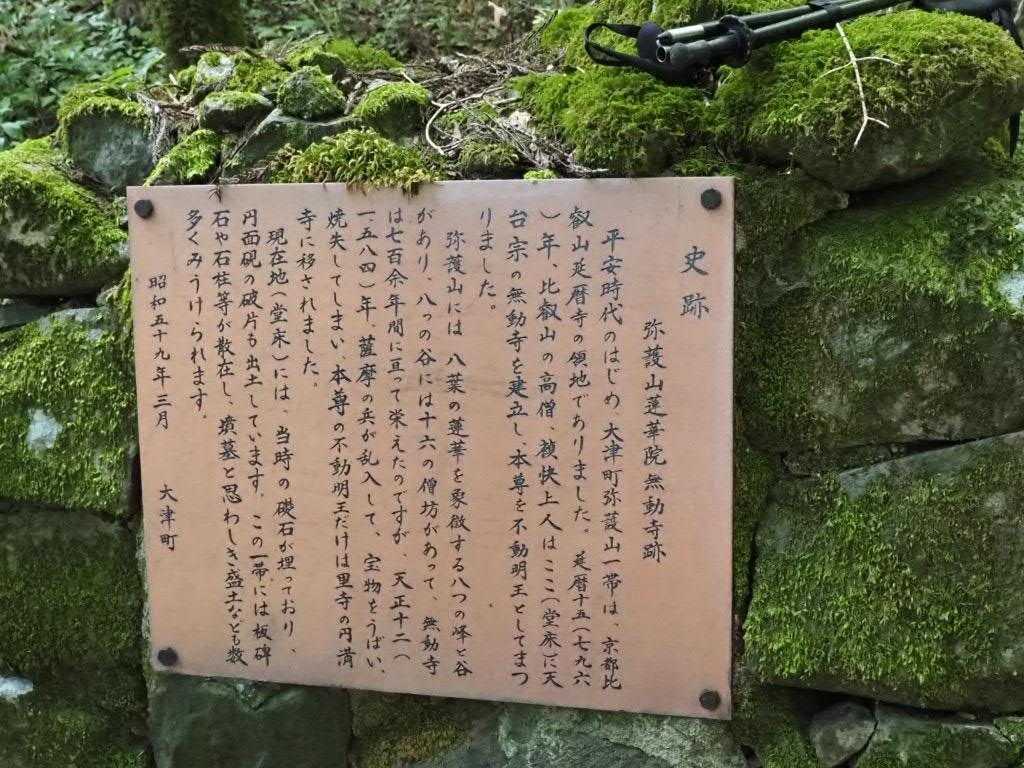 史跡
弥護山蓮華院無動寺跡
平安時代のはじめ、大津町弥護山一帯は、京都比
叡山延暦寺の領地でありました。延暦十五(七九六
)年、比叡山の高僧、禎快上人はここ(堂床)に天
台宗の無動寺を建立し、本尊を不動明王としてまつ
りました。
弥護山には 八葉の蓮華を象徴する八つの峰と谷
があり、八っの谷には十六の僧坊があって、無動寺
は七百余年間に亘って栄えたのですが、天正十二(
一五八四)年、薩摩の兵が乱入して、宝物をうばい、
焼失してしまい、本尊の不動明王だけは里寺の円満
寺に移されました。
現在地(堂床)には、当時の礎石が埋っており、
円面硯の破片も出土しています。この一帯には板碑
石や石柱等が散在し、墳墓と思わしき盛土なども数
多くみうけられます。
昭和五十九年三月
大津町